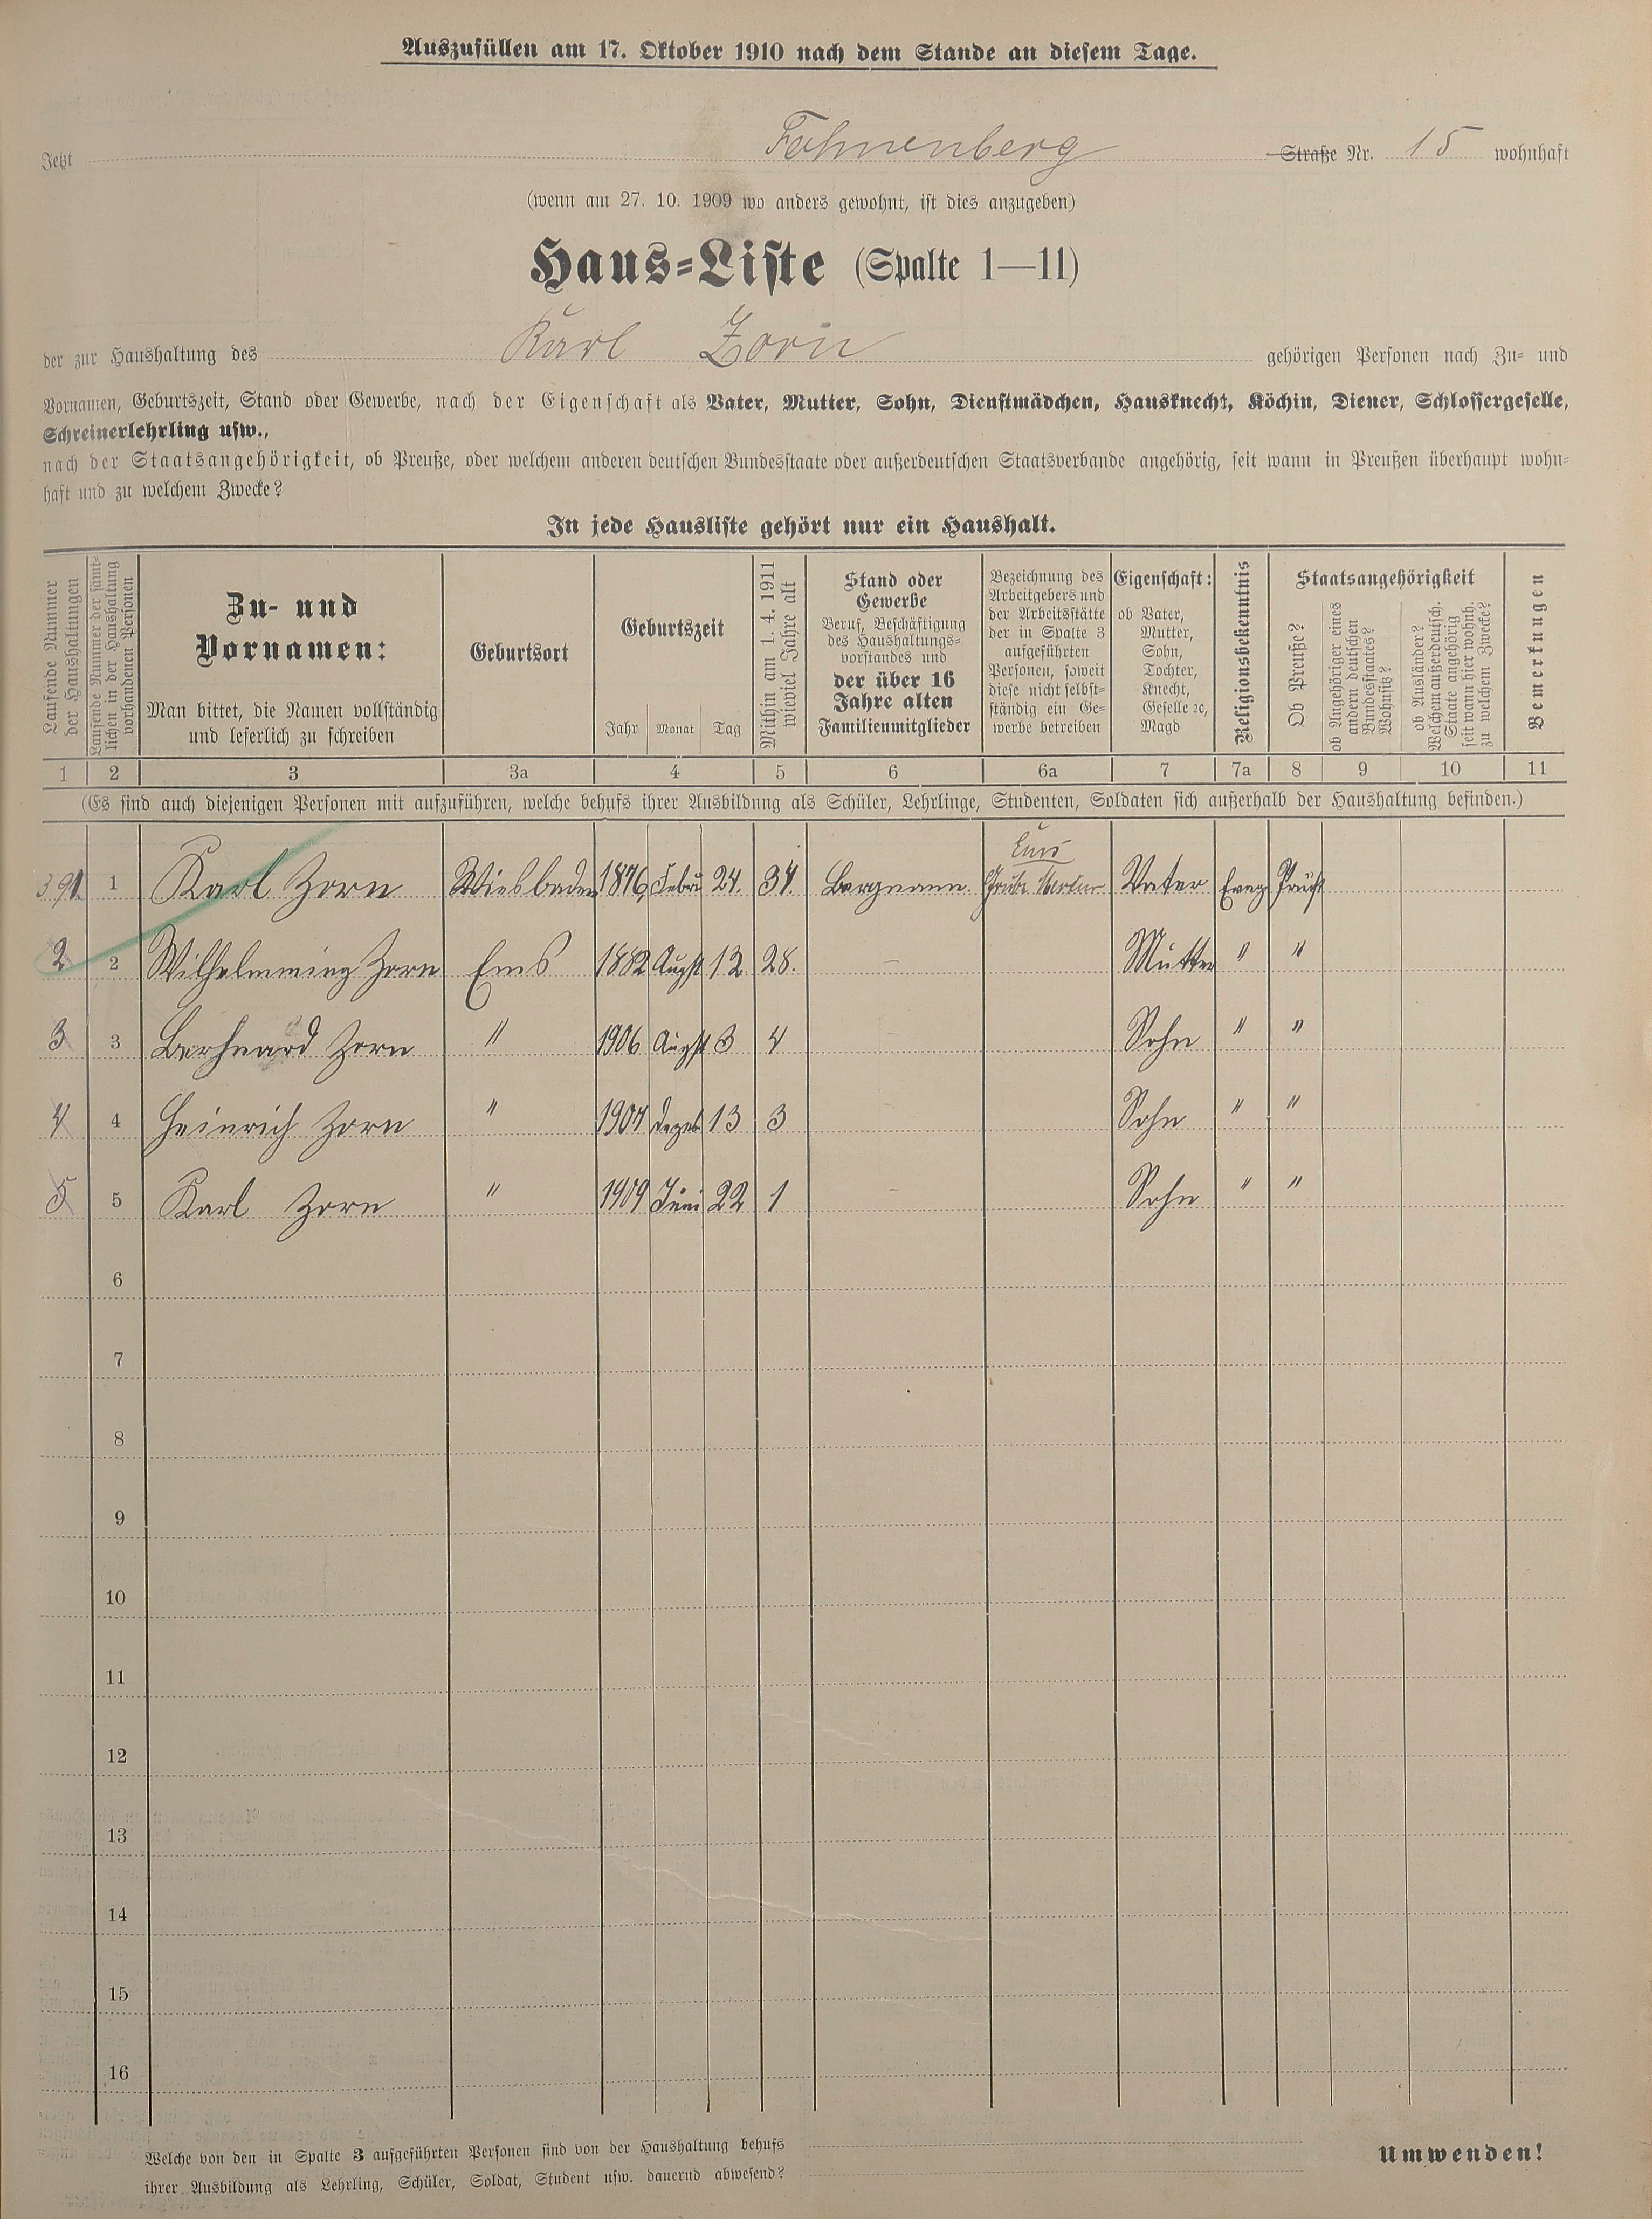 Auszufüllen am 17. Oktober 1910 nach dem Stande an diesem Tage.
Jetzt Fahnenberg Straße Nr. 15 wohnhaft
(wenn am 27. 10. 1909 wo anders gewohnt, ist dies anzugeben)
Haus-Liste (Spalte 1—11)
der zur Haushaltung des Karl Zorn gehörigen Personen nach Zu- und
Vornamen, Geburtszeit, Stand oder Gewerbe, nach der Eigenschaft als Vater, Mutter, Sohn, Dienstmädchen, Hausknecht, Köchin, Diener, Schlossergeselle,
Schreinerlehrling usw.,
nach der Staatsangehörigkeit, ob Preuße, oder welchem anderen deutschen Bundesstaate oder außerdeutschen Staatsverbande angehörig, seit wann in Preußen überhaupt wohn-
haft und zu welchem Zwecke?
In jede Hausliste gehört nur ein Haushalt.
Laufende Nummer
der Haushaltungen
Laufende Nummer der sämt-
lichen in der Haushaltung
vorhandenen Personen
Zu- und
Vornamen:
Man bittet, die Namen vollständig
und leserlich zu schreiben
Geburtsort
Geburtszeit
Jahr Monat Tag
Mithin am 1. 4. 1911
wieviel Jahre alt
Stand oder
Gewerbe
Beruf, Beschäftigung
des Haushaltungs-
vorstandes und
der über 16
Jahre alten
Familienmitglieder
Bezeichnung des
Arbeitgebers und
der Arbeitsstätte
der in Spalte 3
aufgeführten
Personen, soweit
diese nicht selbst-
ständig ein Ge-
werbe betreiben
Eigenschaft:
ob Vater,
Mutter,
Sohn,
Tochter,
Knecht,
Geselle ꝛc,
Magd
Religionsbekenntnis
Staatsangehörigkeit
Ob Preuße?
ob Angehöriger eines
andern deutschen
Bundesstaates?
Wohnsitz?
ob Ausländer?
Welchem außerdeutsch.
Staate angehörig
seit wann hier wohnh.
zu welchem Zwecke?
Bemerkungen
1 2 3 3a 4 5 6 6a 7 7a 8 9 10 11
(Es sind auch diejenigen Personen mit aufzuführen, welche behufs ihrer Ausbildung als Schüler, Lehrlinge, Studenten, Soldaten sich außerhalb der Haushaltung befinden.)
Ems
391. 1 Karl Zorn Wiesbaden 1876 Febru 24. 34. Bergmann. Grube Vater Evng
2 2 Zorn Ems 1882 Augst 12 28. Mutter " "
3 3 Berhnard Zorn " 1906 Augst 3 4 Sohn " "
4 4 Heinrich Zorn " 1907 Dezeb 13 3 Sohn " "
5 5 Karl Zorn " 1909 Juni 22 1 Sohn " "
6
7
8
9
10
11
12
13
14
15
16
Welche von den in Spalte 3 aufgeführten Personen sind von der Haushaltung behufs
ihrer Ausbildung als Lehrling, Schüler, Soldat, Student usw. dauernd abwesend?
Umwenden!